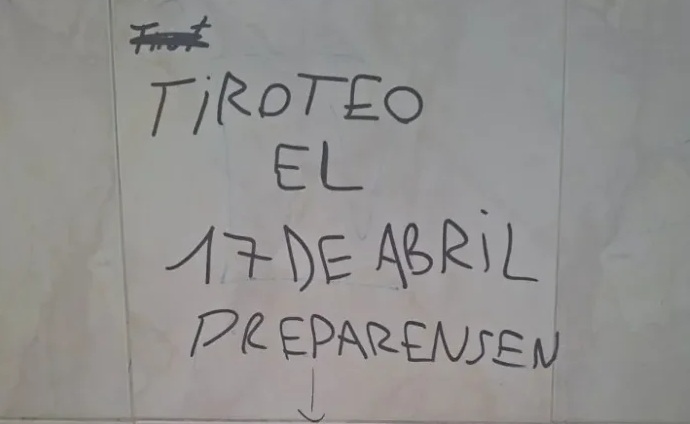 TIROTEO
EL
17 DE ABRIL
PREPARENSEN